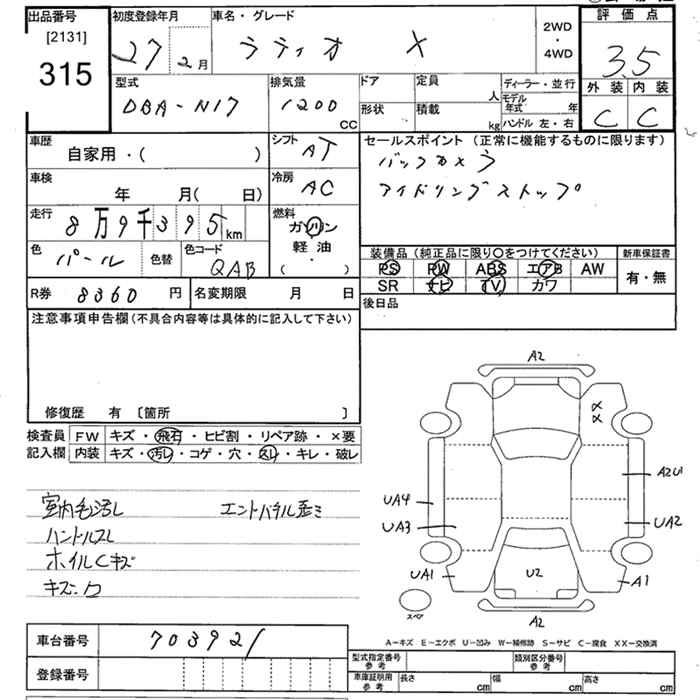 出品番号 [2131] 315
初度登録年月 27 2月
車名・グレード ラティオ X
2WD・4WD
評価点 3.5
外装 C 内装 C
型式 DBA-N17
排気量 1200 CC
ドア 形状
定員 人
積載 kg
ディーラー・並行
モデル年式 年
ハンドル 左・右
車歴 自家用・( )
シフト AT
セールスポイント (正常に機能するものに限ります)
バックカメラ
アイドリングストップ
車検 年 月( 日)
冷房 AC
走行 8万9千395km
燃料 ガソリン 軽油 ( ・ )
色 パール 色替
色コード QAB
装備品 (純正品に限り○をつけてください)
PS PW ABS エアB AW
SR ナビ TV カワ
新車保証書 有・無
R券 8360円
名変期限 月 日
後日品
注意事項申告欄 (不具合内容等は具体的に記入して下さい)
修復歴 有 [箇所 ]
検査員記入欄
FW キズ・飛石・ヒビ割・リペア跡・×要
内装 キズ・汚レ・コゲ・穴・スレ・キレ・破レ
室内毛汚レ
エンドパネル歪ミ
ハンドルスレ
ホイルCキズ
キズ・凹
A2
XX
UA4
UA3
UA1
A2U1
UA2
A1
U2
A2
スペア
A-キズ E-エクボ U-凹み W-補修跡 S-サビ C-腐食 XX-交換済
車台番号 703921
登録番号
型式指定番号 参考
類別区分番号 参考
車庫証明用 参考 長さ cm 幅 cm 高さ cm